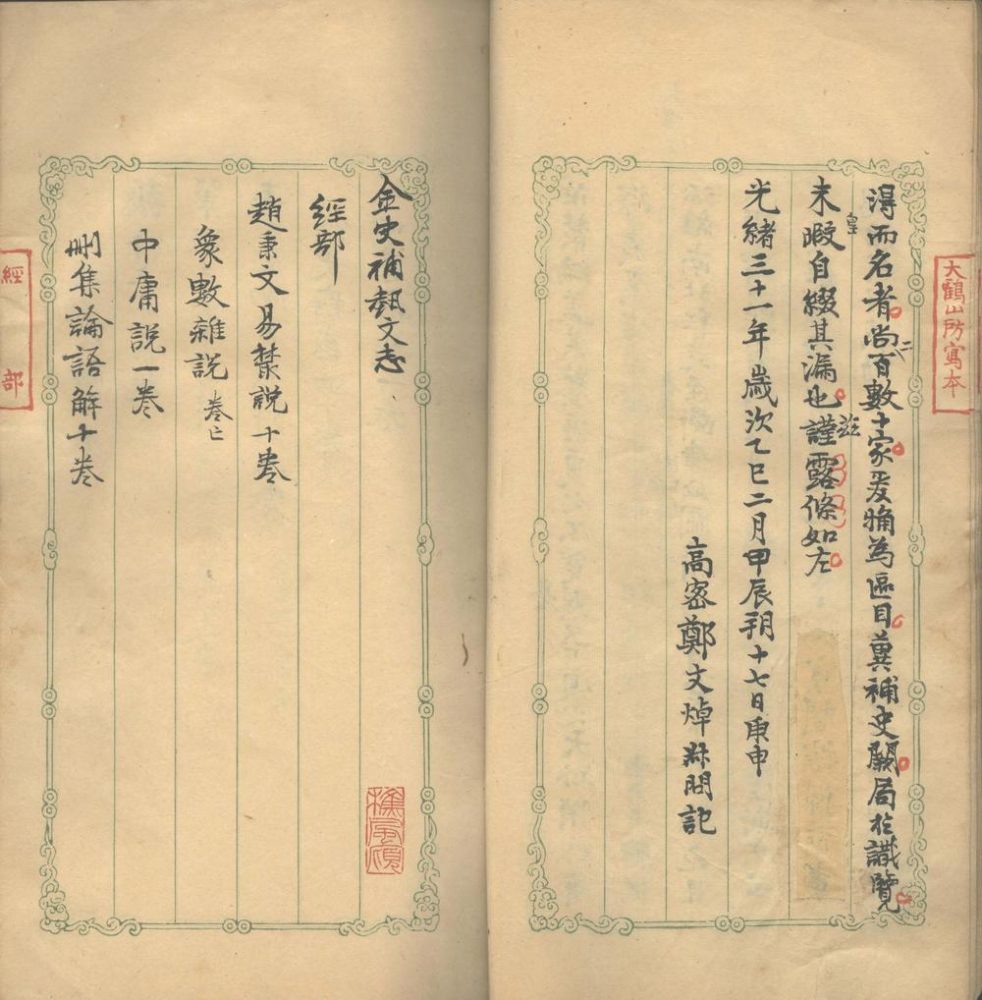 大鶴山房寫本
得而名者尚百數十家爰觕為區目冀補史闕局於識覽
二
未暇自綴其漏也謹露條如左
皇
茲
光緒三十一年歲次乙巳二月甲辰朔十七日庚申
高密鄭文焯叔問記
金史補蓺文志
經部
趙秉文易藂説十卷
象數雜説 卷亡
中庸説一卷
刪集論語解十卷
經 部